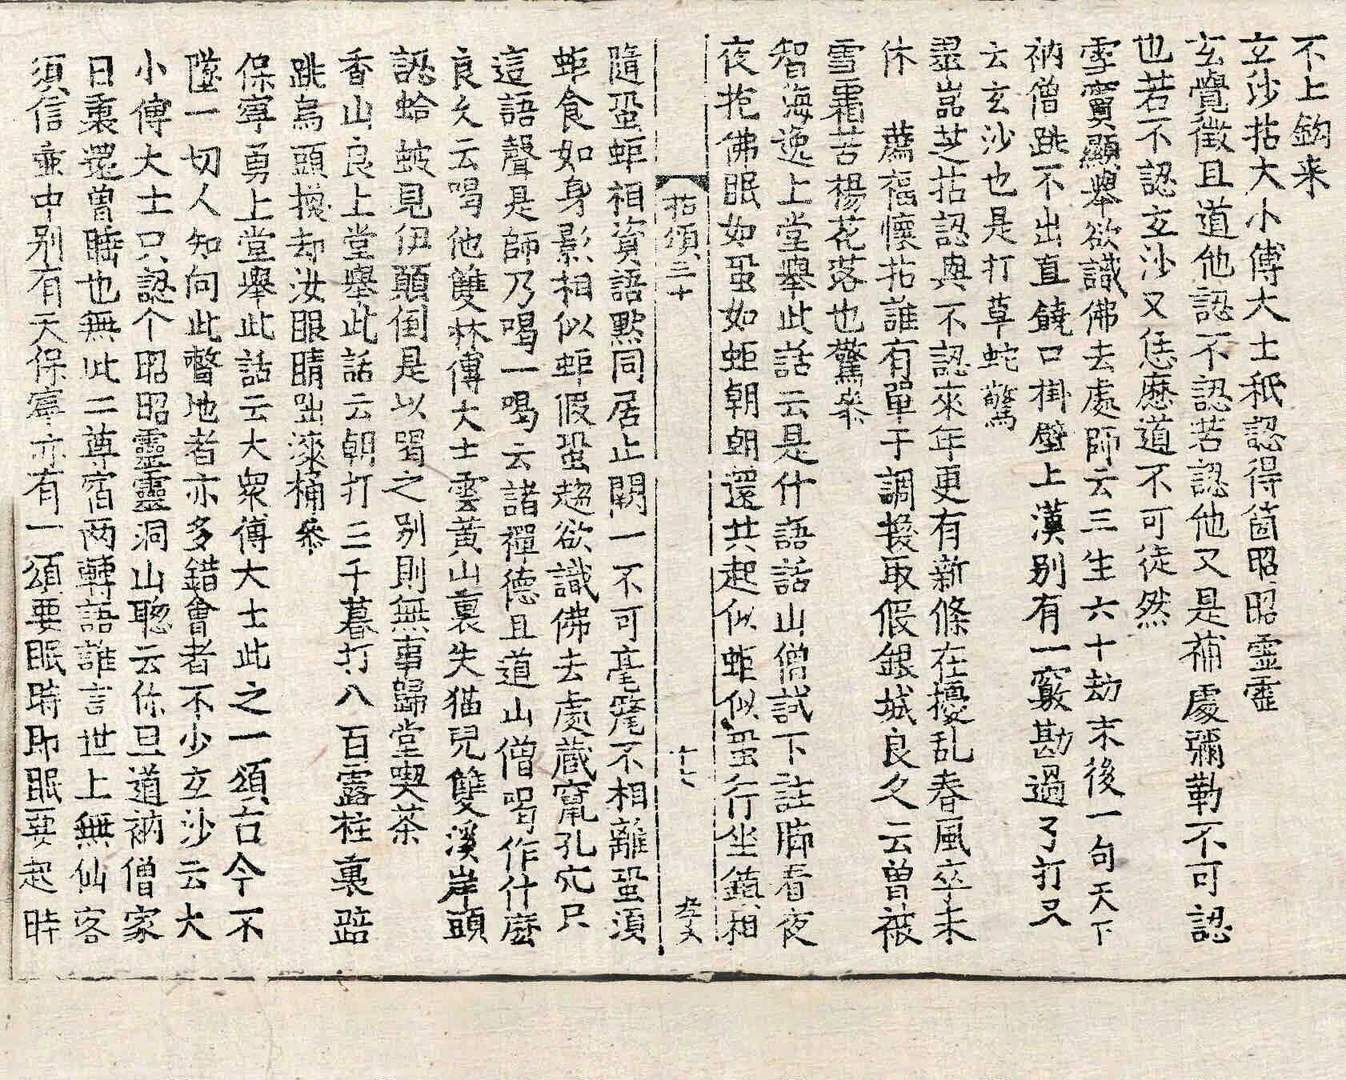 不上鈎来
玄沙拈大小傅大士秖認得箇昭昭靈靈
玄覺徵且道他認不認若認他又是補處彌勒不可認
也若不認玄沙又恁麽道不可徒然
雪竇顯舉欲識佛去處師云三生六十劫末後一句天下
衲僧跳不出直饒口掛壁上漢别有一竅勘過了打又
云玄沙也是打草蛇驚
琅瑘拈認與不認來年更有新條在擾乱春風卒未
休 薦福懷拈誰有單于調換取假銀城良久云曽被
雪霜苦楊花落也驚叅
智海逸上堂舉此話云是什語話山僧試下註脚看夜
夜抱佛眠如蛩如蚷朝朝還共起似蚷似蛩行坐鎮相
拈頌三十 十七 孝文
隨蛩蚷相資語黙同居止闕一不可毫氂不相離蛩湏
蚷食如身影相似蚷假蛩趍欲識佛去處蔵竄孔穴只
這語聲是師乃喝一喝云諸禪德且道山僧喝作什麽
良久云喝他雙林傅大士雲黄山裏失猫兒雙溪岸頭
認蛤蚾見伊顛倒是以喝之别則無事歸堂喫茶
香山良上堂舉此話云朝打三千暮打八百露柱裏踣
跳烏頭換却汝眼睛咄漆桶叅
保寧勇上堂舉此話云大衆傅大士此之一頌古今不
墜一切人知向此瞥地者亦多錯會者不少玄沙云大
小傅大士只認个昭昭靈靈洞山聦云你且道衲僧家
日裏還曽睡也無此二尊宿两轉語誰言世上無仙客
須信壷中别有天保寧亦有一頌要眠時即眠要起時